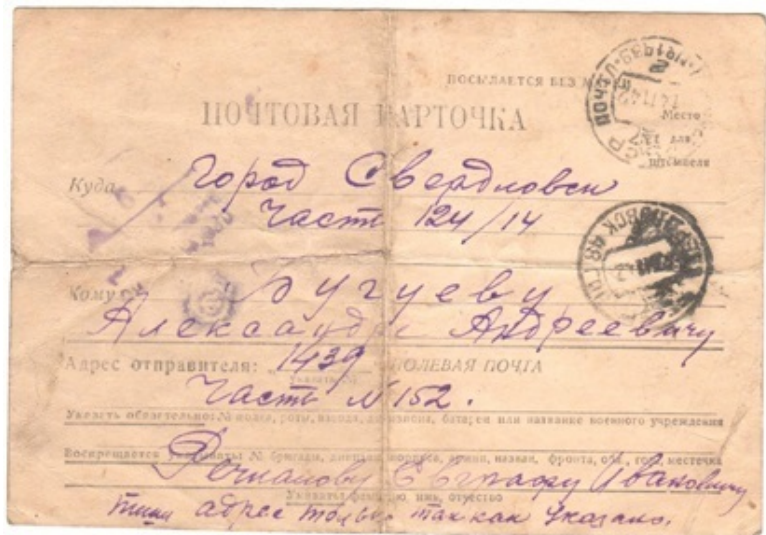 ПОСЫЛАЕТСЯ БЕЗ
ПОЧТОВАЯ КАРТОЧКА
Место
для
штемпеля
Куда Город Свердловск
Часть 124/14
Кому Бугуеву
Александру Андреевичу
Адрес отправителя: 1439 ПОЛЕВАЯ ПОЧТА
Часть № 152.
Указать обязательно: № полка, роты, взвода, дивизиона, батареи или название военного учреждения
Воспрещается указывать № бригады, дивизии, корпуса, армии, назван. фронта, обл., гор., местечка
Евграфу Ивановичу
Указать фамилию, имя, отчество
Пиши адрес только так как указано.